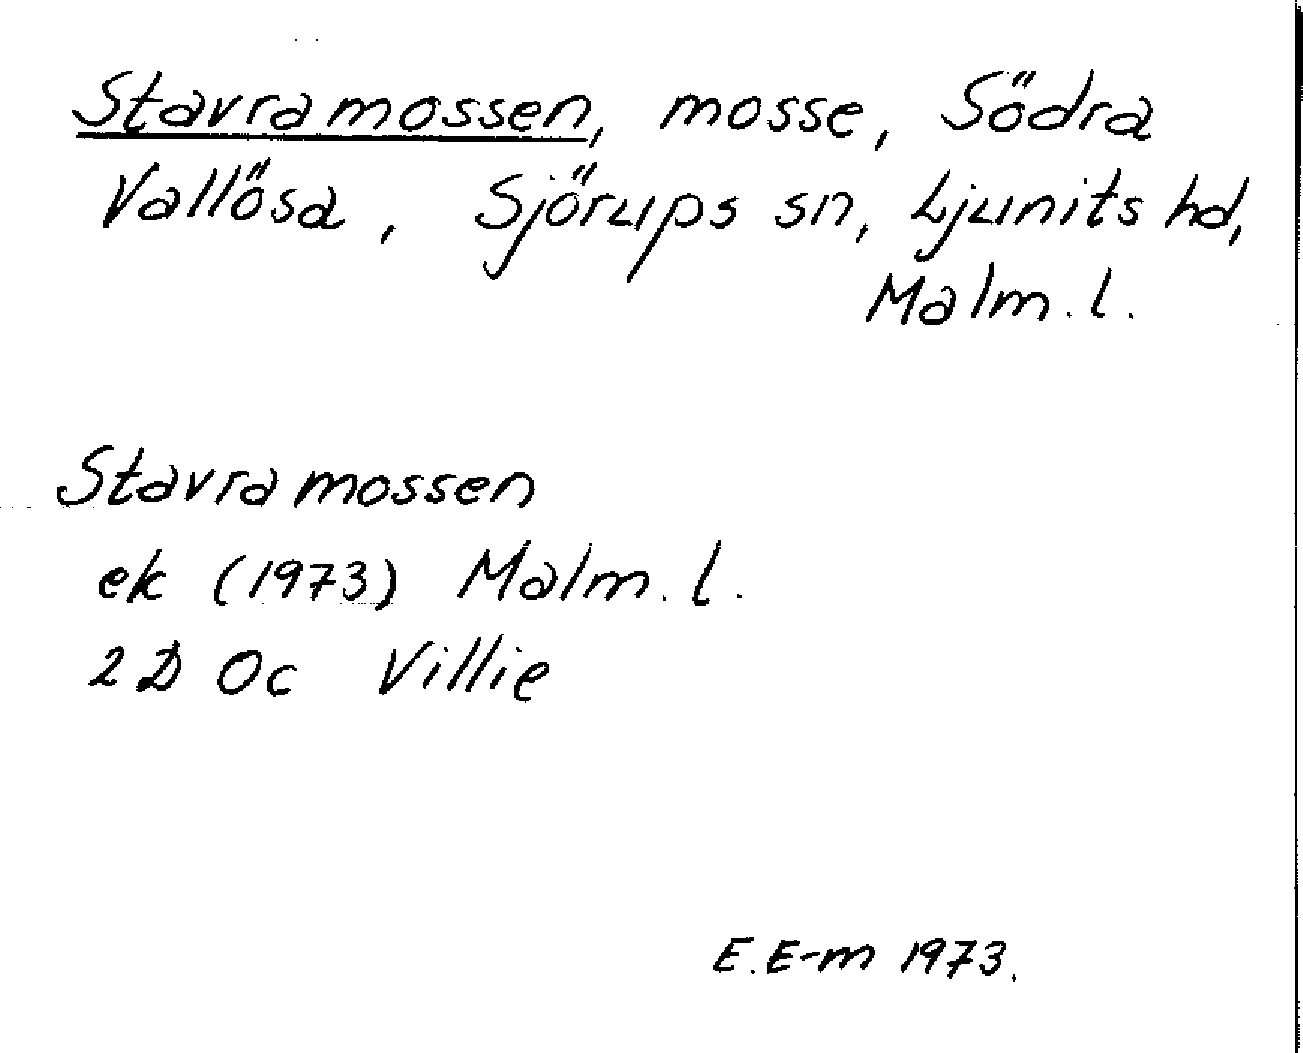 Stavramossen, mosse, Södra
Vallösa, Sjörups sn, Ljunits hd,
Malm. l.
Stavramossen
ek (1973) Malm. l.
2D Oc Villie
E. E-m 1973.